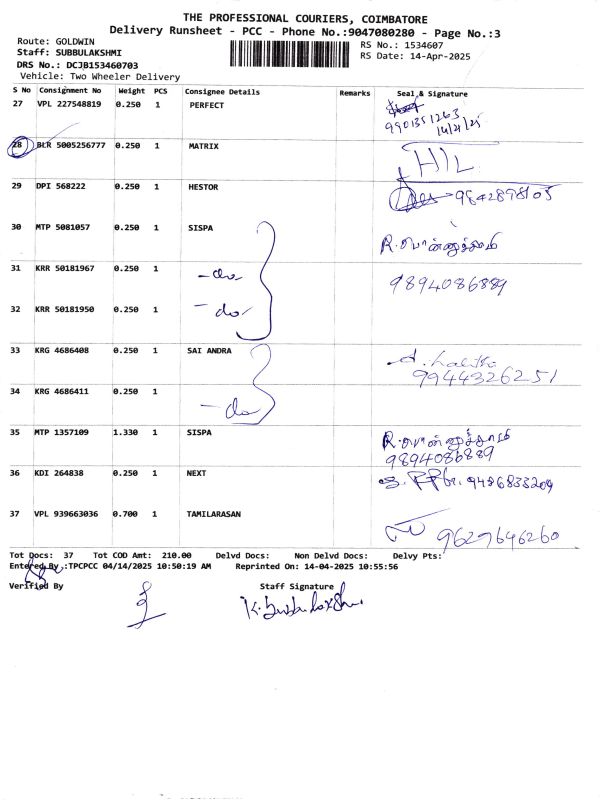 THE PROFESSIONAL COURIERS, COIMBATORE
Delivery Runsheet - PCC - Phone No.:9047080280 - Page No.:3
Route: GOLDWIN
Staff: SUBBULAKSHMI
DRS No.: DCJB153460703
Vehicle: Two Wheeler Delivery
RS No.: 1534607
RS Date: 14-Apr-2025
S No Consignment No Weight PCS Consignee Details Remarks Seal & Signature
27 VPL 227548819 0.250 1 PERFECT
9901351263
14/4/25
28 BLR 5005256777 0.250 1 MATRIX
29 DPI 568222 0.250 1 HESTOR 9842898105
30 MTP 5081057 0.250 1 SISPA
31 KRR 50181967 0.250 1 -do- 9894086889
32 KRR 50181950 0.250 1 -do-
33 KRG 4686408 0.250 1 SAI ANDRA
9944326251
34 KRG 4686411 0.250 1 -do-
35 MTP 1357109 1.330 1 SISPA
9894086889
36 KDI 264838 0.250 1 NEXT 9486833209
37 VPL 939663036 0.700 1 TAMILARASAN
9629646260
Tot Docs: 37 Tot COD Amt: 210.00 Delvd Docs: Non Delvd Docs: Delvy Pts:
Entered By :TPCPCC 04/14/2025 10:50:19 AM Reprinted On: 14-04-2025 10:55:56
Verified By Staff Signature
K. Subbulakshmi